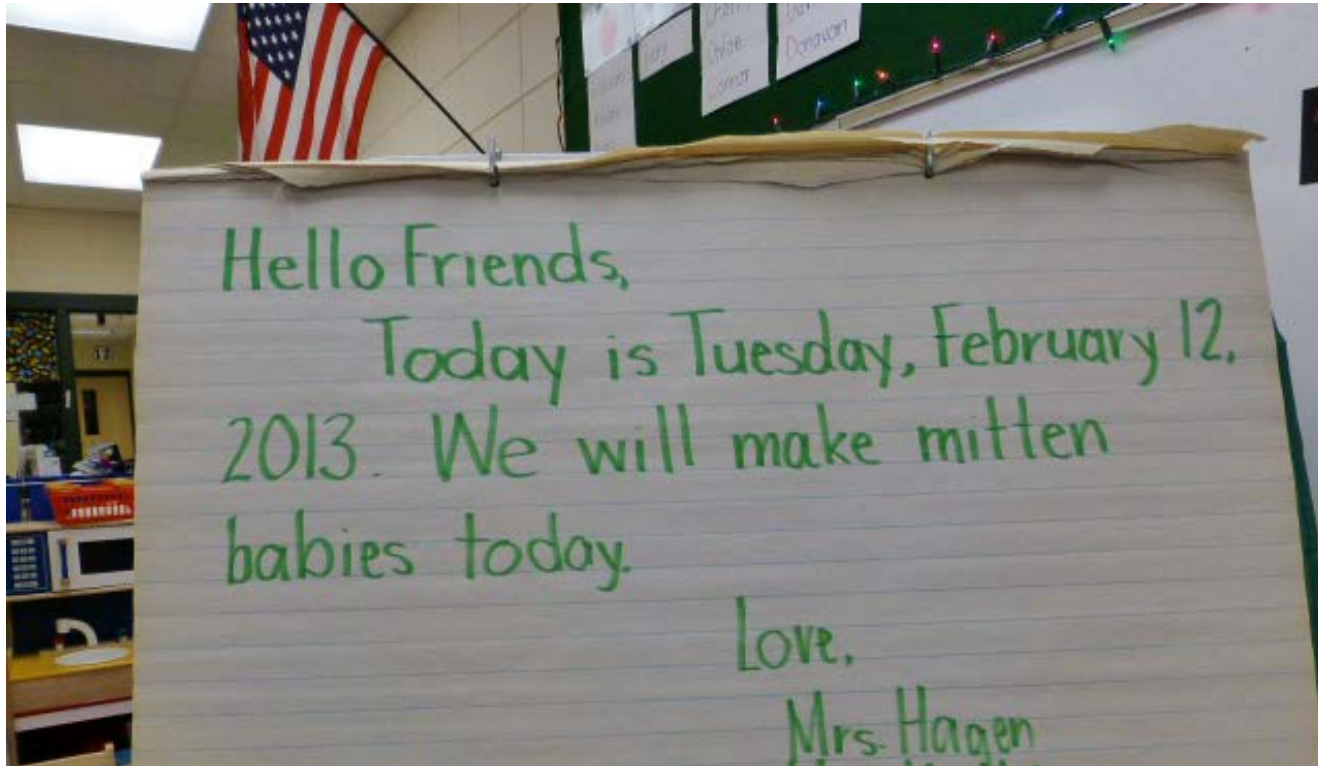 Donavan
Hello Friends,
Today is Tuesday, February 12,
2013. We will make mitten
babies today.
Love,
Mrs. Hagen